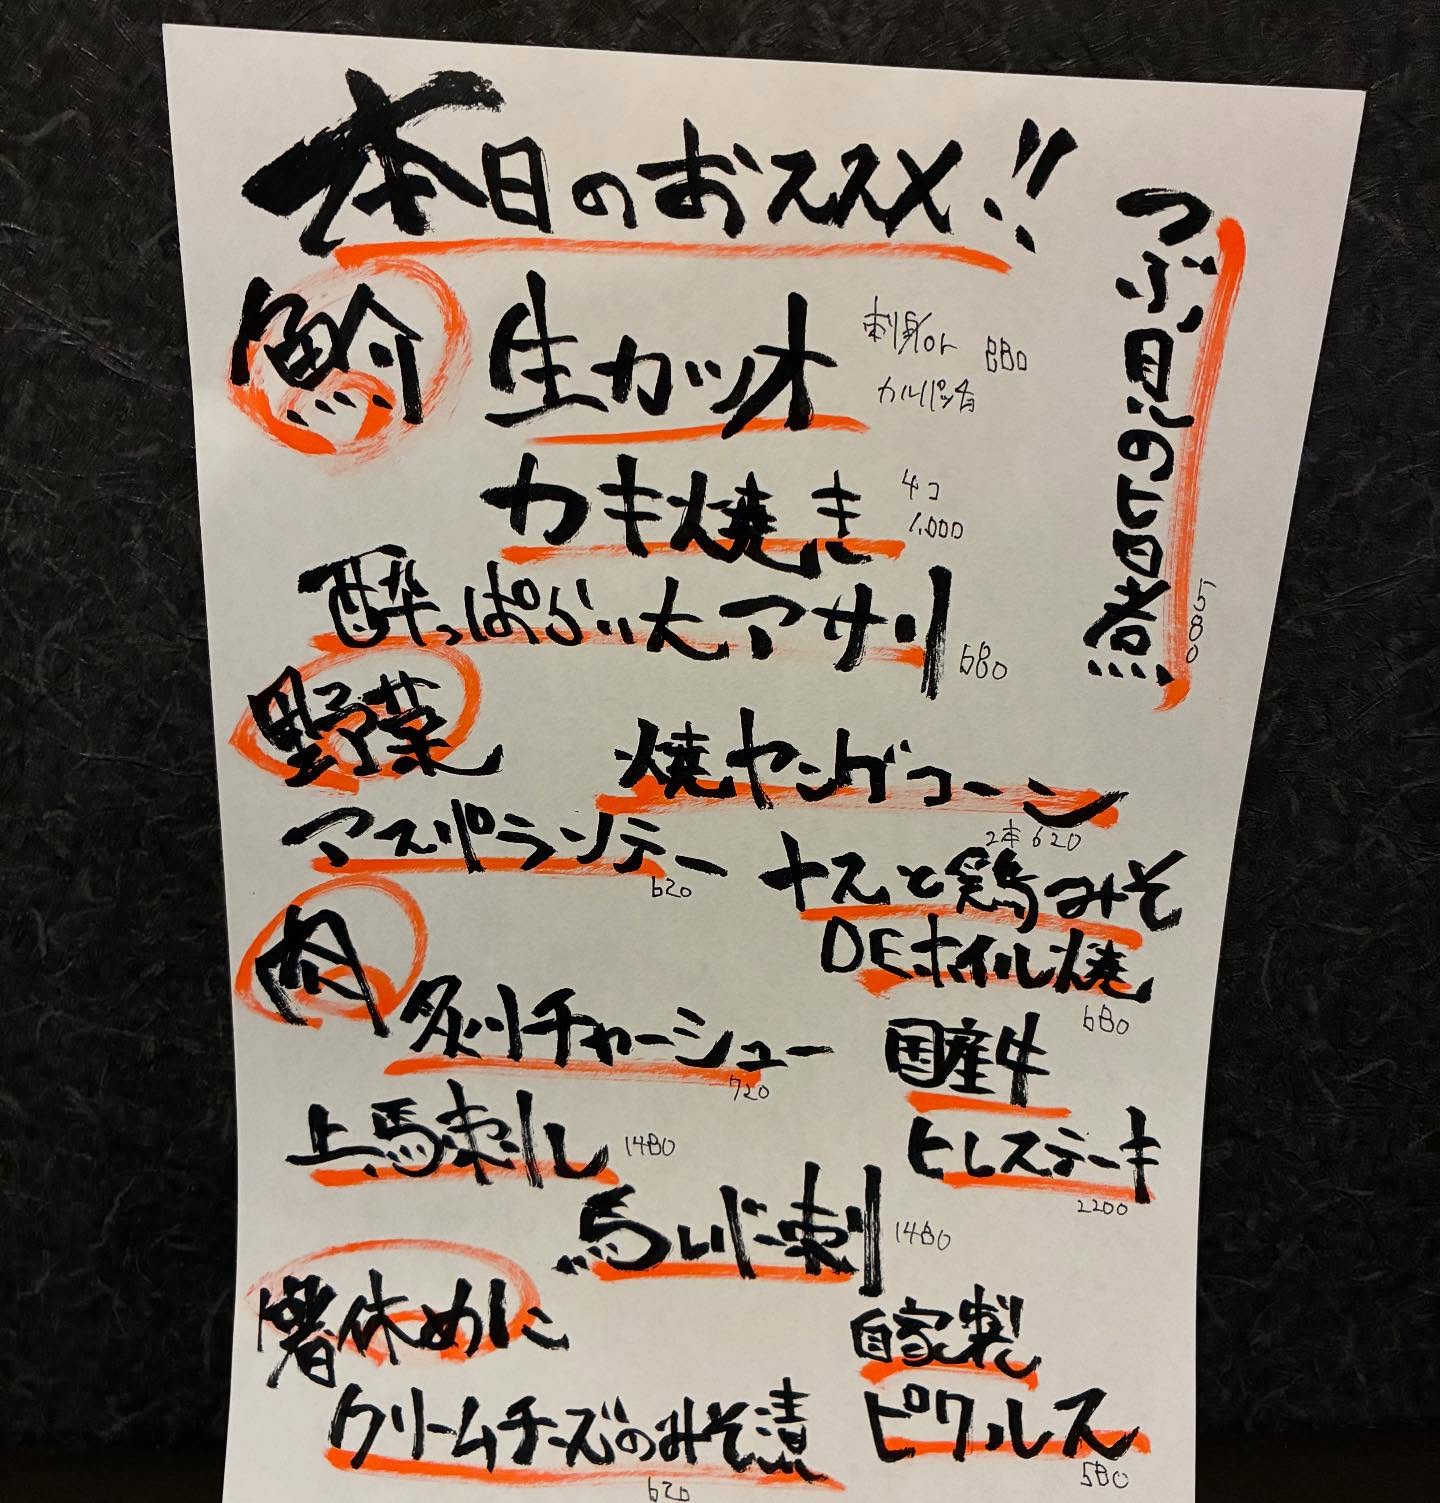 本日のおススメ!!
つぶ貝の旨煮
580
魚介
生カツオ
刺身or
カルパッチョ
880
カキ焼き
4コ
1,000
酔っぱらい大アサリ
680
野菜
焼ヤングコーン
2本 620
アスパランテー
620
ナスと鶏みそ
DEホイル焼
680
肉
炙りチャーシュー
720
国産牛
ヒレステーキ
2200
上馬刺し
1480
馬レバー刺
1480
箸休めに
自家製
ピクルス
580
クリームチーズのみそ漬
620